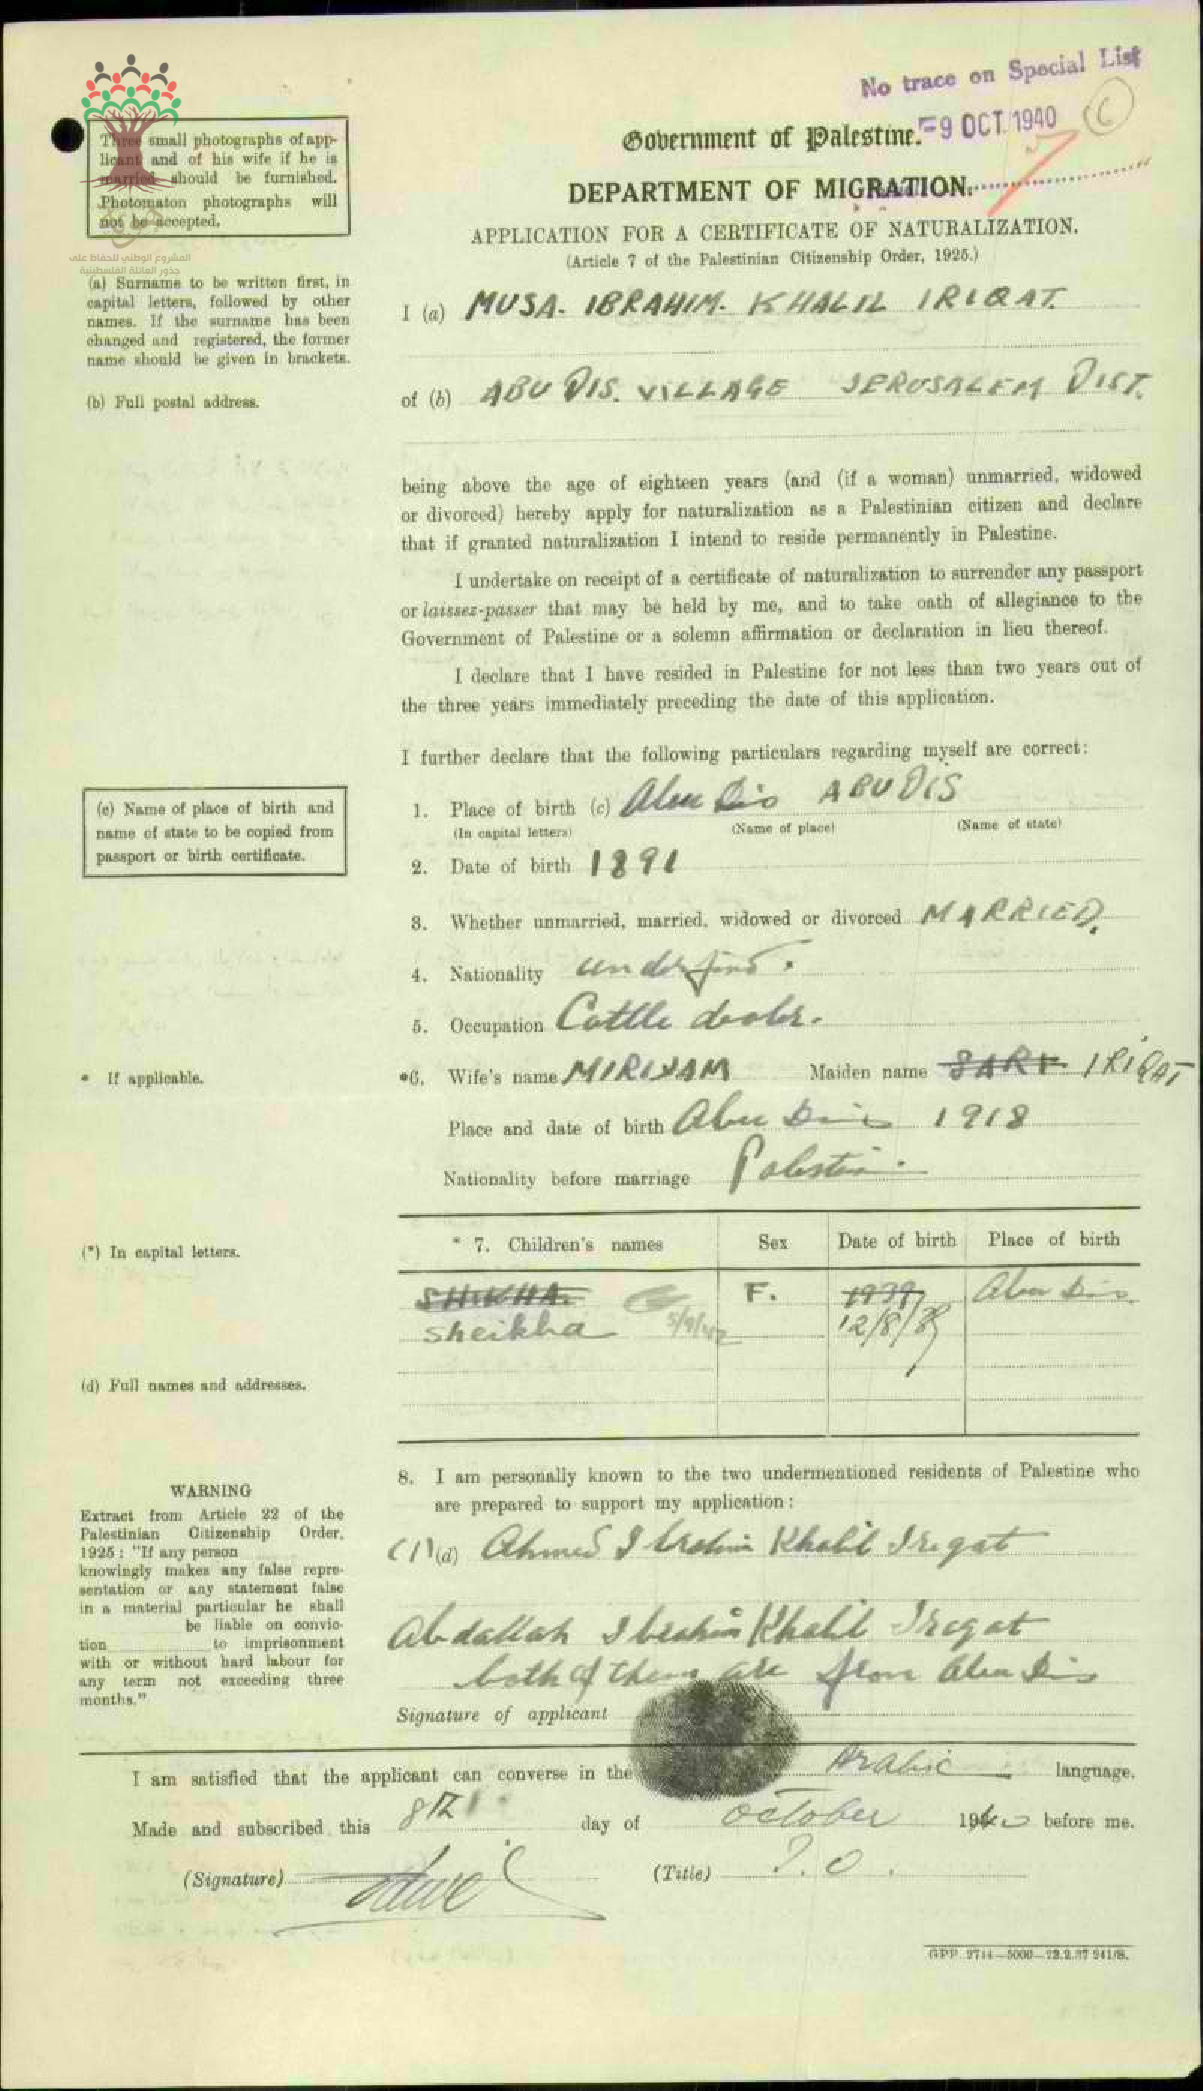 No trace on Special List
Government of Palestine.
-9 OCT. 1940
DEPARTMENT OF MIGRATION.
APPLICATION FOR A CERTIFICATE OF NATURALIZATION.
(Article 7 of the Palestinian Citizenship Order, 1925.)
Three small photographs of app-
licant and of his wife if he is
married should be furnished.
Photomaton photographs will
not be accepted.
المشروع الوطني للحفاظ على
جذور العائلة الفلسطينية
(a) Surname to be written first, in
capital letters, followed by other
names. If the surname has been
changed and registered, the former
name should be given in brackets.
I (a) MUSA. IBRAHIM. KHALIL IRIQAT.
(b) Full postal address.
of (b) ABU DIS. VILLAGE JERUSALEM DIST.
being above the age of eighteen years (and (if a woman) unmarried, widowed
or divorced) hereby apply for naturalization as a Palestinian citizen and declare
that if granted naturalization I intend to reside permanently in Palestine.
I undertake on receipt of a certificate of naturalization to surrender any passport
or laissez-passer that may be held by me, and to take oath of allegiance to the
Government of Palestine or a solemn affirmation or declaration in lieu thereof.
I declare that I have resided in Palestine for not less than two years out of
the three years immediately preceding the date of this application.
I further declare that the following particulars regarding myself are correct:
(c) Name of place of birth and
name of state to be copied from
passport or birth certificate.
1. Place of birth (c) Abu Dis ABU DIS
(In capital letters) (Name of place) (Name of state)
2. Date of birth 1891
3. Whether unmarried, married, widowed or divorced MARRIED.
4. Nationality undefind.
5. Occupation Cattle dealer.
* If applicable.
*6. Wife's name MIRIYAM Maiden name SARE IRIQAT
Place and date of birth Abu Dis 1918
Nationality before marriage Palestin.
(*) In capital letters.
* 7. Children's names Sex Date of birth Place of birth
SHIKHA. F. 1939 Abu Dis.
Sheikha 5/9/42 12/8/39
(d) Full names and addresses.
8. I am personally known to the two undermentioned residents of Palestine who
are prepared to support my application:
(1) (d) Ahmed Ibrahim Khalil Iregat
Abdallah Ibrahim Khalil Iregat
both of them are from Abu Dis
Signature of applicant
WARNING
Extract from Article 22 of the
Palestinian Citizenship Order,
1925: "If any person
knowingly makes any false repre-
sentation or any statement false
in a material particular he shall
be liable on convic-
tion to imprisonment
with or without hard labour for
any term not exceeding three
months."
I am satisfied that the applicant can converse in the Arabic language.
Made and subscribed this 8th day of October 1940 before me.
(Signature) (Title) P.O.
GPP. 2714—5000—22.2.37 241/S.